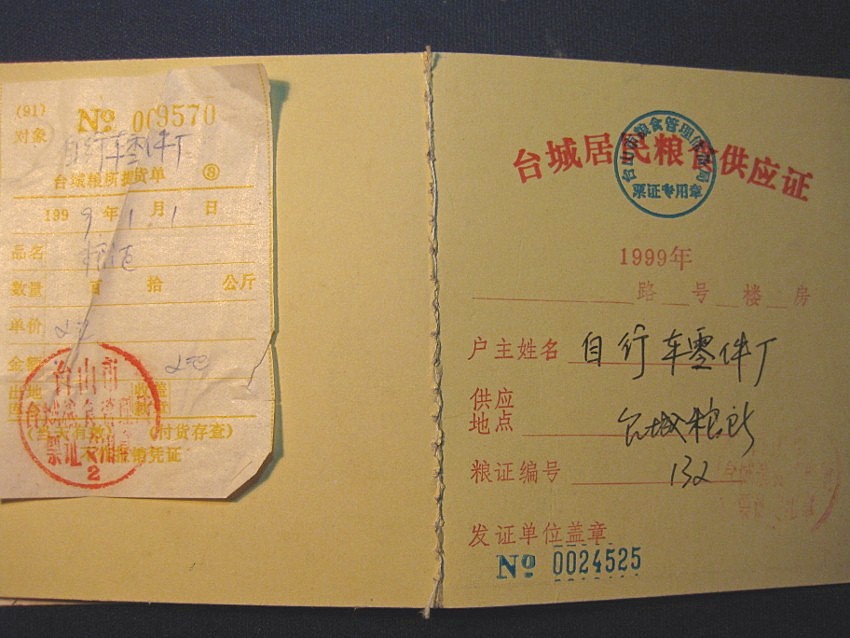 (91)
对象
№ 009570
自行车零件厂
台城粮所提货单 ⑧
1999年1月1日
品名
数量 百 拾 公斤
单价
金额
(当天有效) (付货存查)
不作报销凭证
台山市
票证专用章
2
台城居民粮食供应证
票证专用章
1999年
路 号 楼 房
户主姓名 自行车零件厂
供应
地点 台城粮所
粮证编号 132
发证单位盖章
№ 0024525